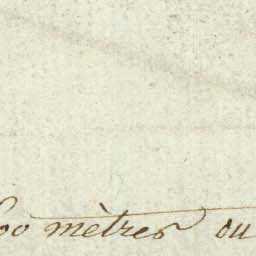 mètres ou